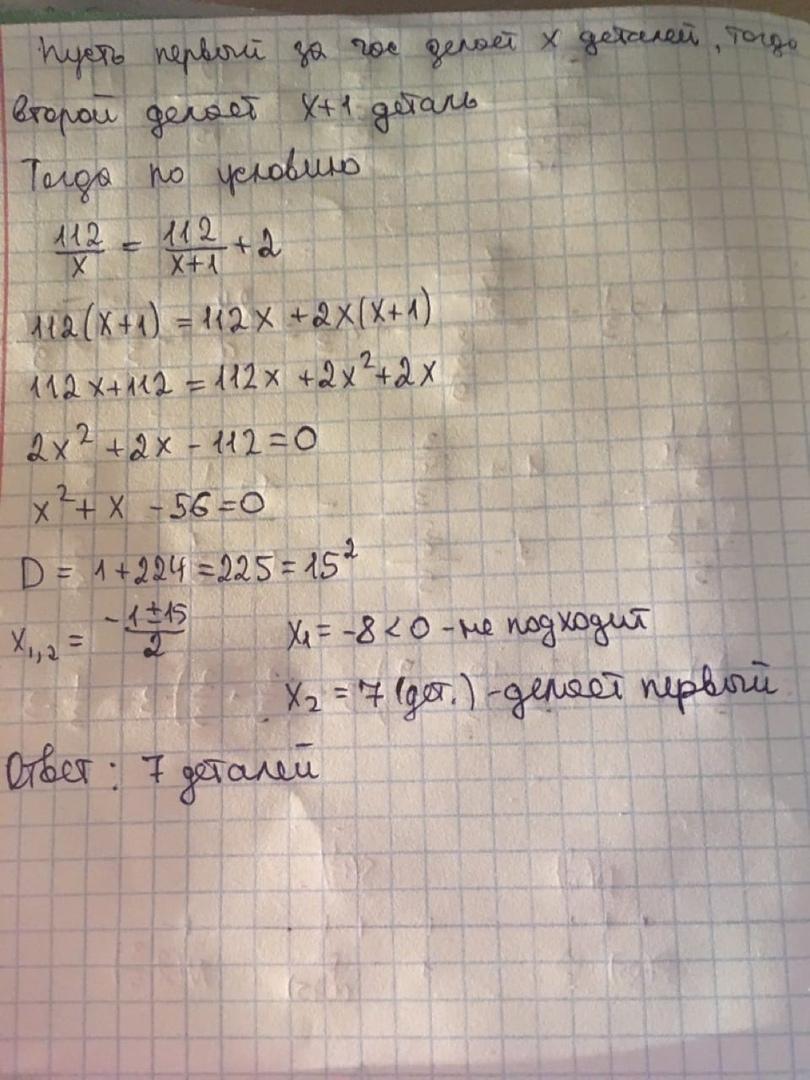 Пусть первый за час делает x деталей, тогда
второй делает x+1 деталь
Тогда по условию
112/x = 112/(x+1) + 2
112(x+1) = 112x + 2x(x+1)
112x+112 = 112x + 2x² + 2x
2x² + 2x - 112 = 0
x² + x - 56 = 0
D = 1+224 = 225 = 15²
x₁,₂ = (-1±15)/2 x₁ = -8 < 0 - не подходит
x₂ = 7 (дет.) - делает первый
Ответ: 7 деталей